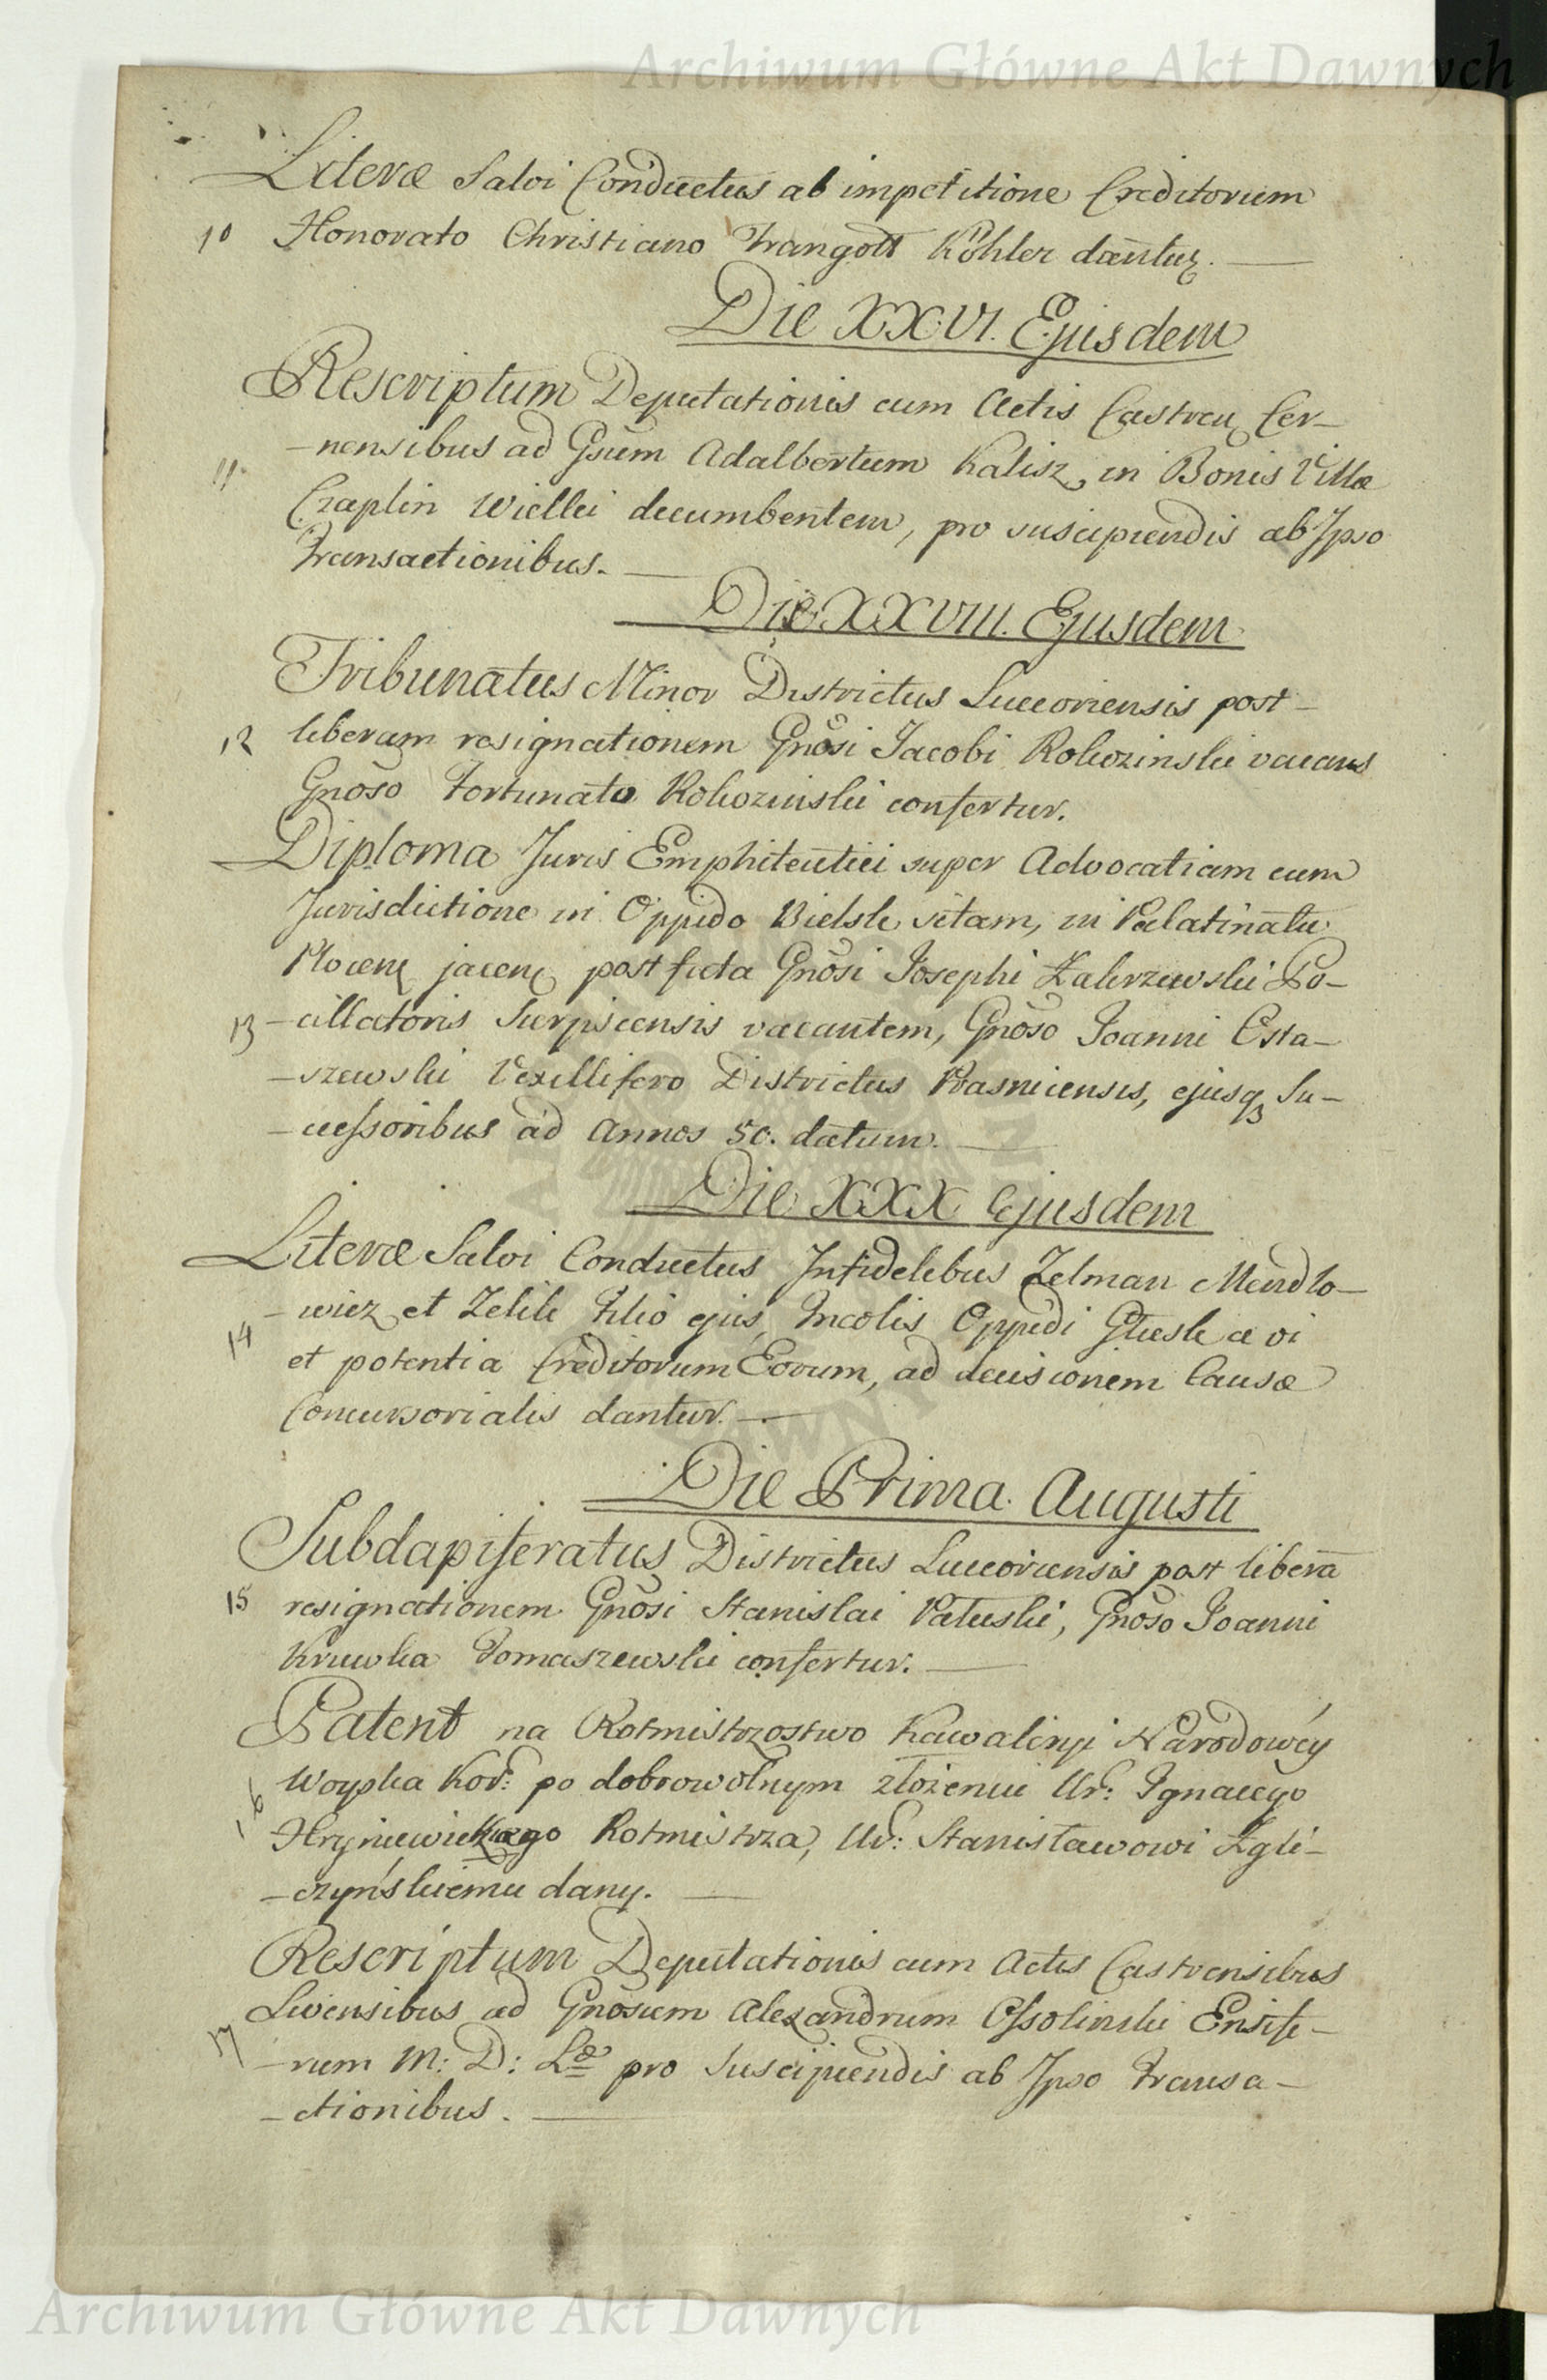 Archiwum Główne Akt Dawnych
Literæ Salvi Conductus ab impetitione Creditorum
10 Honorato Christiano Trangott Köhler dantur.
Die XXVI. Ejusdem
Rescriptum Deputationis cum Actis Castren Cer-
-nensibus ad Gsum Adalbertum Kalisz, in Bonis Villæ
11.
Czaplin Wielki decumbentem, pro suscipiendis ab Ipso
Transactionibus.
Die XXVIII. Ejusdem
Tribunatus Minor Districtus Luceoriensis post
12 liberam resignationem Gnosi Jacobi Rokozinski vacans
Gnoso Fortunato Rokozinski confertur.
Diploma Juris Emphiteutici super Advocatiam cum
Jurisdictione in Oppido Bielsk sitam, in Palatinatu
Plocen jacen post fata Gnosi Josephi Zakrzewski Po-
13 -cillatoris Sierpscensis vacantem, Gnoso Joanni Osta-
-szewski Vexillifero Districtus Prasnicensis, ejusq Su-
-ccessoribus ad Annos 50. datum.
Die XXX Ejusdem
Literæ Salvi Conductus Infidelibus Zelman Mendlo-
-wicz et Zelik Filio ejus, Incolis Oppidi Głusk a vi
14
et potentia Creditorum Eorum, ad decisionem Causæ
Concursorialis dantur.
Die Prima Augusti
Subdapiferatus Districtus Luceoriensis post liberã
15 resignationem Gnosi Stanislai Paluski, Gnoso Joanni
Kruwka Tomaszewski confertur.
Patent na Rotmistrzostwo Kawaleryi Narodowéy
Woyska Kor: po dobrowolnym złożeniu Ur: Ignacego
16
Hryniewickiego Rotmistrza, Ur: Stanisławowi Zgli-
-czyńskiemu dany.
Rescriptum Deputationis cum Actis Castrensibus
Livensibus ad Gnosum Alexandrum Ossolinski Ensife-
17
-rum M: D: L. pro Suscipiendis ab Ipso Transa-
-ctionibus.
Archiwum Główne Akt Dawnych